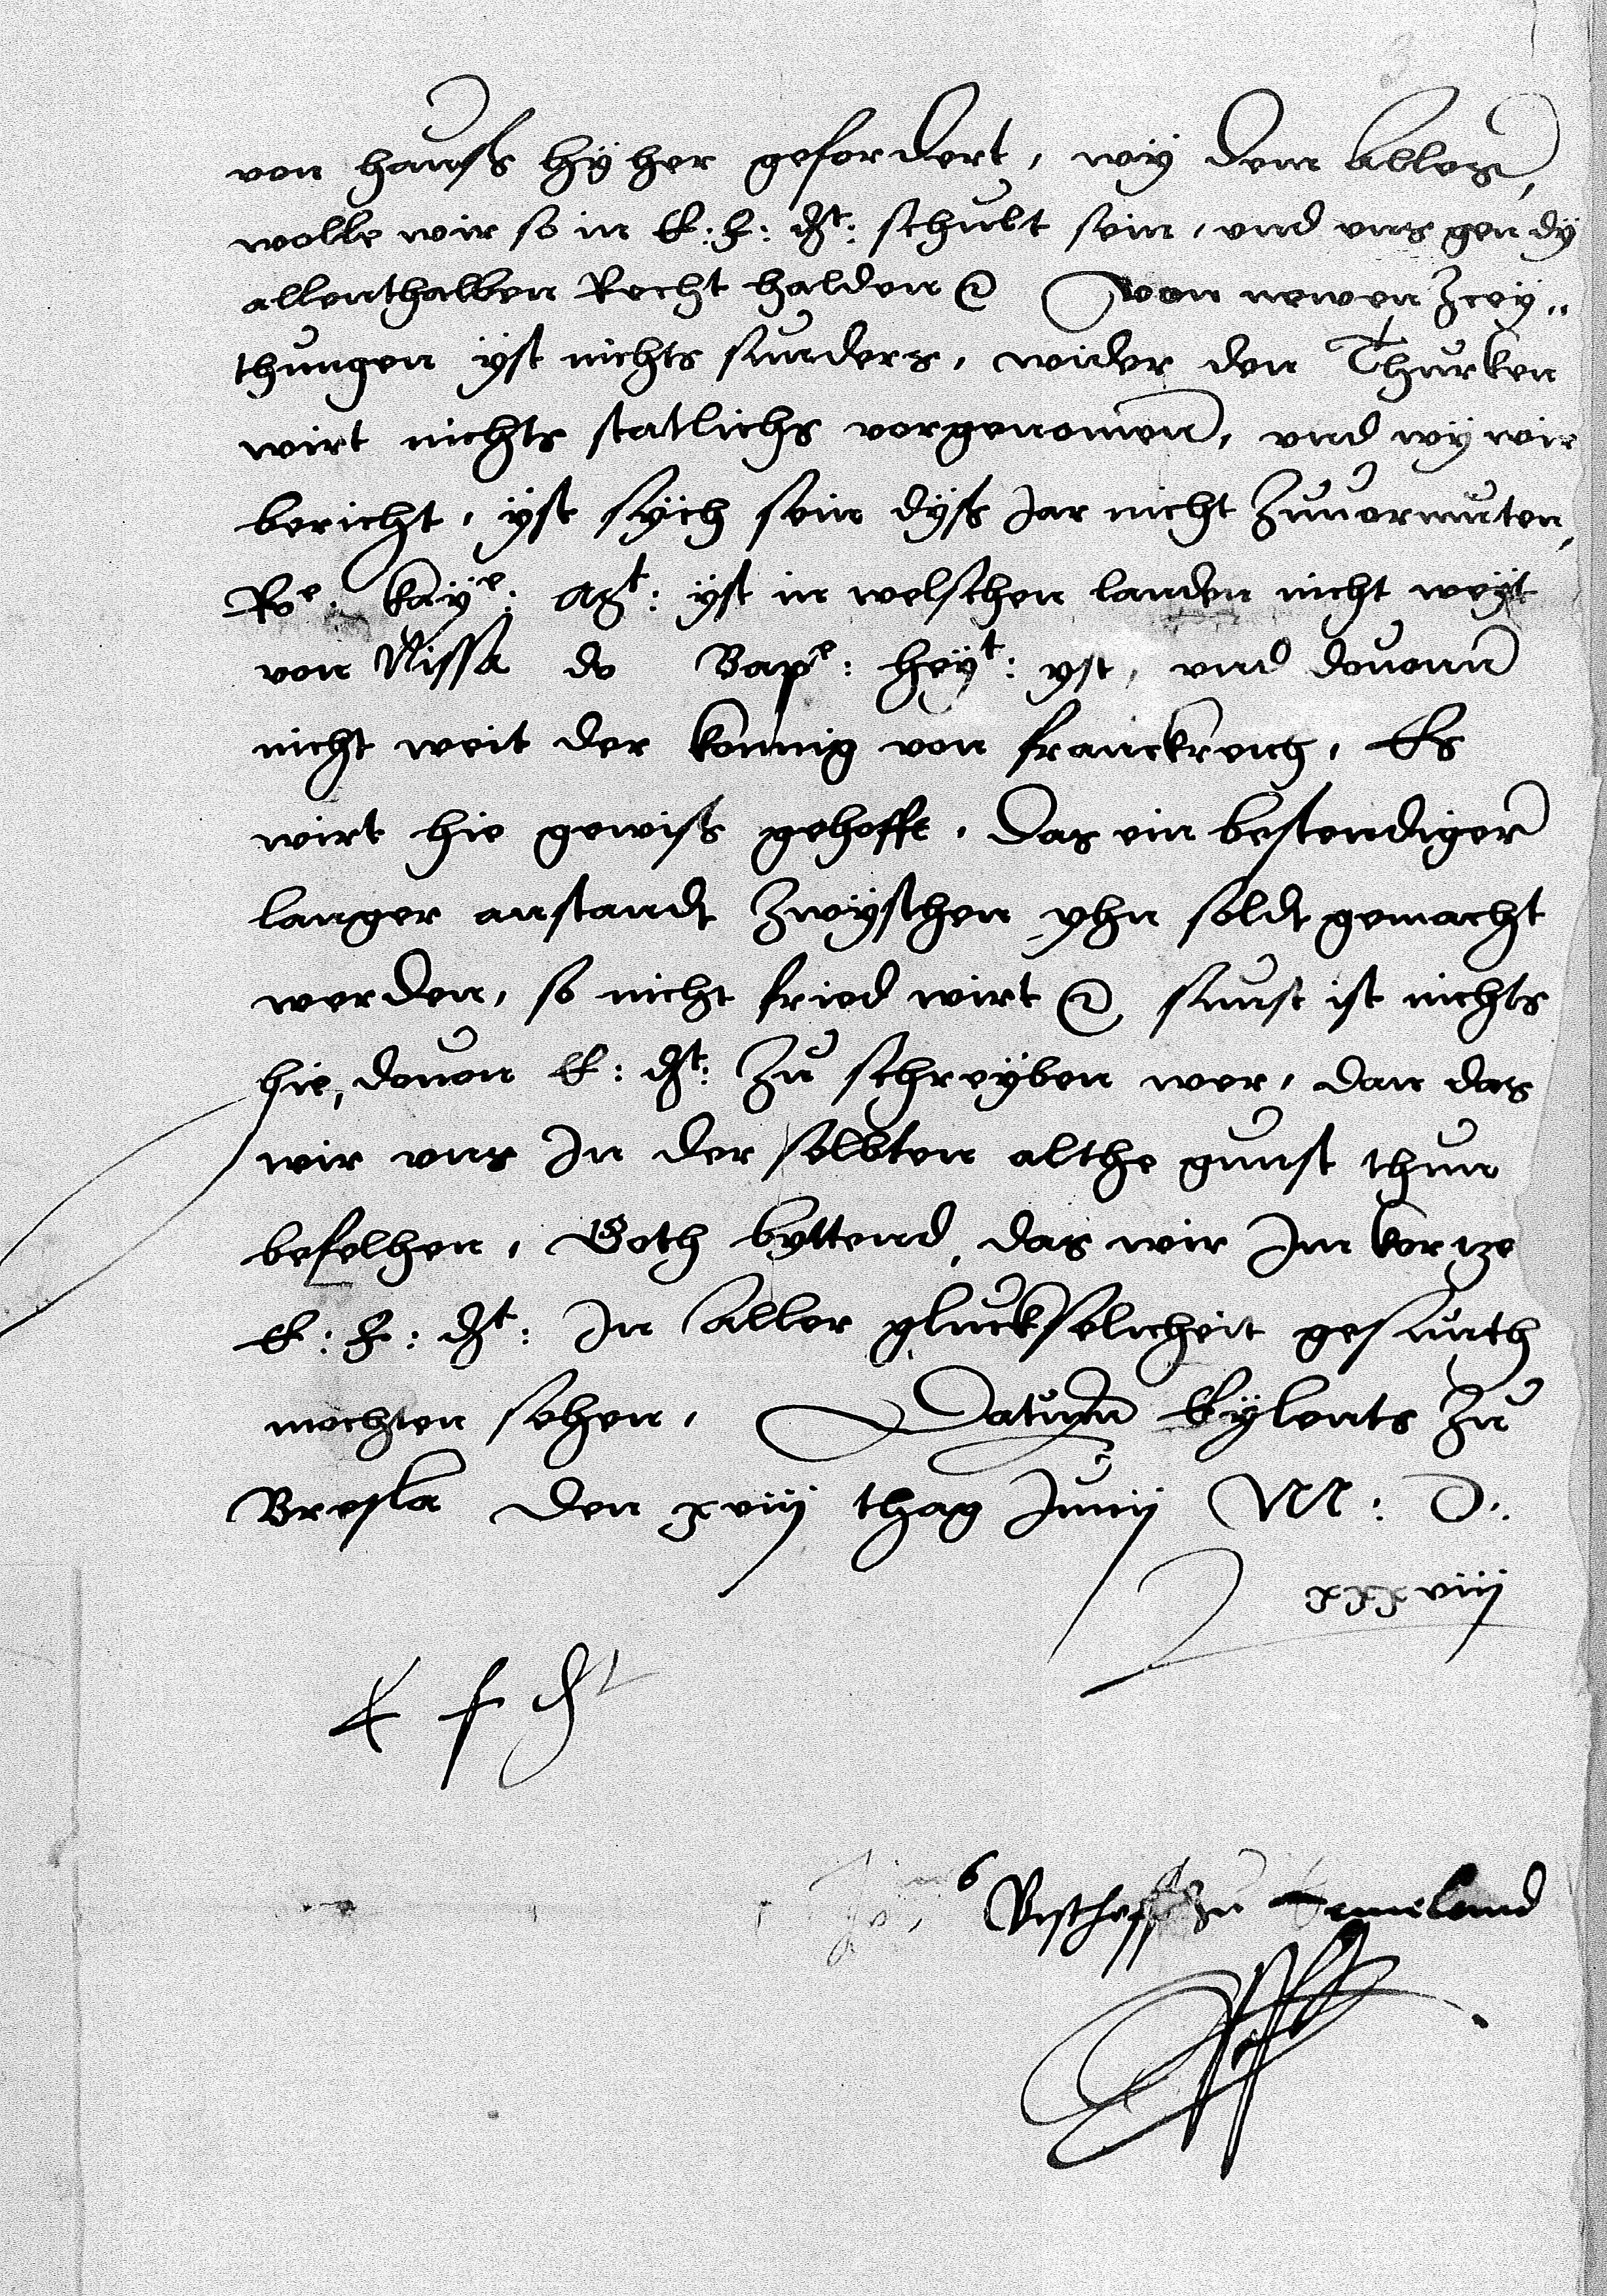 von hauss hyher gefordert, wy dem alles,
wolle wir so in E: F: Dt: schult sein, und uns gen dy
allenthalben Recht halden Von newen Zcey„
thungen yst nichts sunders, wider den Thurken
wirt nichts statlichs vorgenomen, und wy wir
bericht, yst sych sein dyss Jar nicht zuuormuten,
Roe: kaye: Mt: yst in welschen landen nicht weyt
von Nissa do Bape: heyt: yst, und douonn
nicht weit der konnig von franckreich, Es
wirt hie gewiss gehofft, Das ein bestendiger
langer anstandt zwyschen yhn soldt gemacht
werden, so nicht fried wirt sunst ist nichts
hie, douon E: Dt: zu schreyben wer, dan das
wir uns In der selbten althe gunst thun
befelhen, Goth byttend, das wir Im kortze
E: F: Dt: In aller gluckselicheit gesunth
mochten sehen, Datum Eylents zu
Bresla den xviij thag Junij M: D:
xxxviij
E f Dt
Jo, Bischoff zu Ermeland